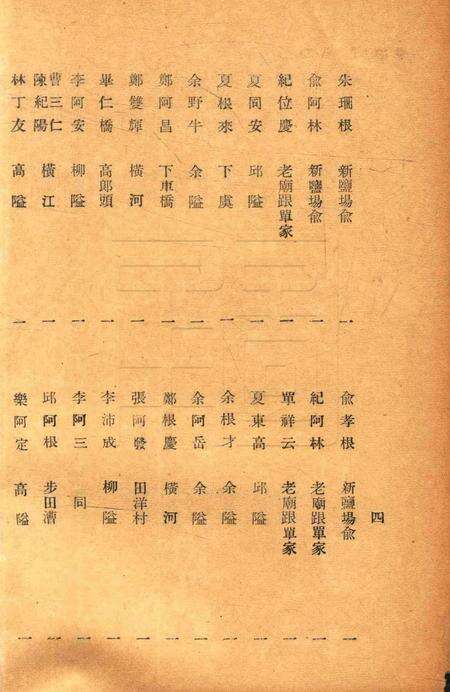 朱瑂根 新鹽場俞 一
俞阿林 新鹽場俞 一
紀位慶 老廟跟單家 一
夏同安 邱隘 一
夏根來 下虞 一
余野牛 余隘 一
鄭阿昌 下車橋 一
鄭燮輝 橫河 一
畢仁橋 高郎頭 一
李阿安 柳隘 一
曹三仁
陳紀陽 橫江 一
林丁友 高隘 一
俞孝根 新鹽場俞 一
紀阿林 老廟跟單家 一
單祥云 老廟跟單家 一
夏東高 邱隘 一
余根才 余隘 一
余阿岳 余隘 一
鄭根慶 橫河 一
張阿發 田洋村 一
李沛成 柳隘 一
李阿三 同 一
邱阿根 步田漕 一
樂阿定 高隘 一
四